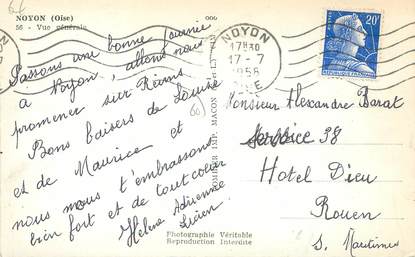 NOYON (Oise)
56 - Vue générale
Passons une bonne journée
à Noyon, allons nous
promener sur Reims
Bons baisers de Louise
et de Maurice et
nous nous t'embrassons
bien fort et de tout cœur
Hélène Adrienne
Lucien
Photographie Véritable
Reproduction Interdite
COMBIER IMP. MACON
NOYON
17H30
17-7
1958
OISE
20F
REPUBLIQUE FRANÇAISE
Monsieur Alexandre Barat
Service 98
Hotel Dieu
Rouen
S. Maritime